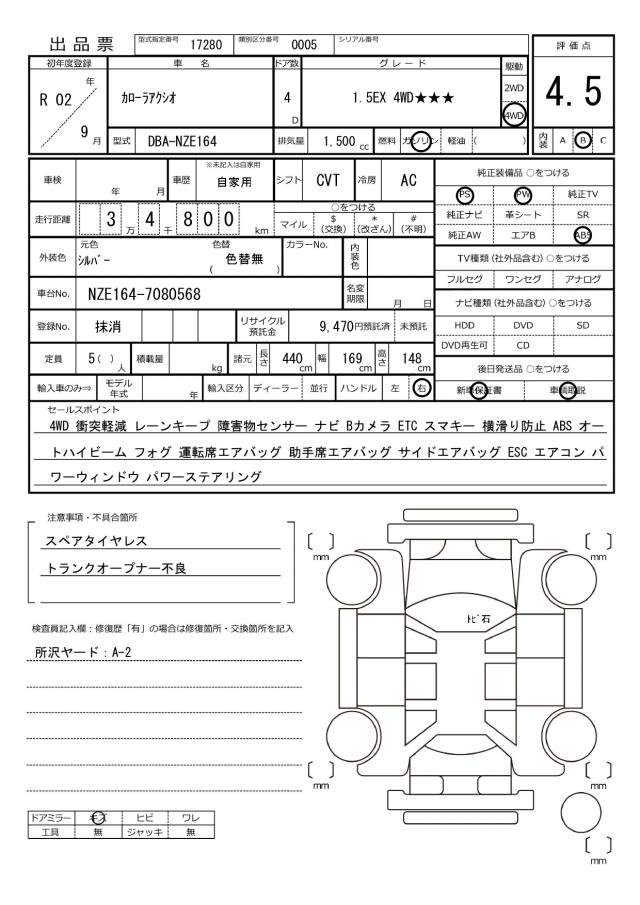 出品票 型式指定番号 17280 類別区分番号 0005 シリアル番号
初年度登録 車 名 ドア数 グレード 駆動 評価点
R 02 年 9 月 カローラアクシオ 4 D 1.5EX 4WD★★★ 2WD 4WD 4.5
型式 DBA-NZE164 排気量 1.500 cc 燃料 ガソリン 軽油 ( ) 内装 A B C
車検 年 月 車歴 ※未記入は自家用 自家用 シフト CVT 冷房 AC
純正装備品 ○をつける
PS PW 純正TV
純正ナビ 革シート SR
純正AW エアB ABS
走行距離 3 万 4 千 8 0 0 km ○をつける
マイル $ (交換) * (改ざん) # (不明)
外装色 元色 シルバー 色替 ( 色替無 ) カラーNo. 内装色
TV種類 (社外品含む) ○をつける
フルセグ ワンセグ アナログ
車台No. NZE164-7080568 名変期限 月 日
ナビ種類 (社外品含む) ○をつける
HDD DVD SD
DVD再生可 CD
登録No. 抹消 リサイクル預託金 9,470円預託済 未預託
定員 5( ) 人 積載量 kg 諸元 長さ 440 cm 幅 169 cm 高さ 148 cm
後日発送品 ○をつける
新車保証書 車輌取説
輸入車のみ⇒ モデル年式 年 輸入区分 ディーラー 並行 ハンドル 左 右
セールスポイント
4WD 衝突軽減 レーンキープ 障害物センサー ナビ Bカメラ ETC スマキー 横滑り防止 ABS オー
トハイビーム フォグ 運転席エアバッグ 助手席エアバッグ サイドエアバッグ ESC エアコン パ
ワーウィンドウ パワーステアリング
注意事項・不具合箇所
スペアタイヤレス
トランクオープナー不良
検査員記入欄:修復歴「有」の場合は修復箇所・交換箇所を記入
所沢ヤード:A-2
mm
mm
トビ石
mm
mm
mm
ドアミラー キズ ヒビ ワレ
工具 無 ジャッキ 無